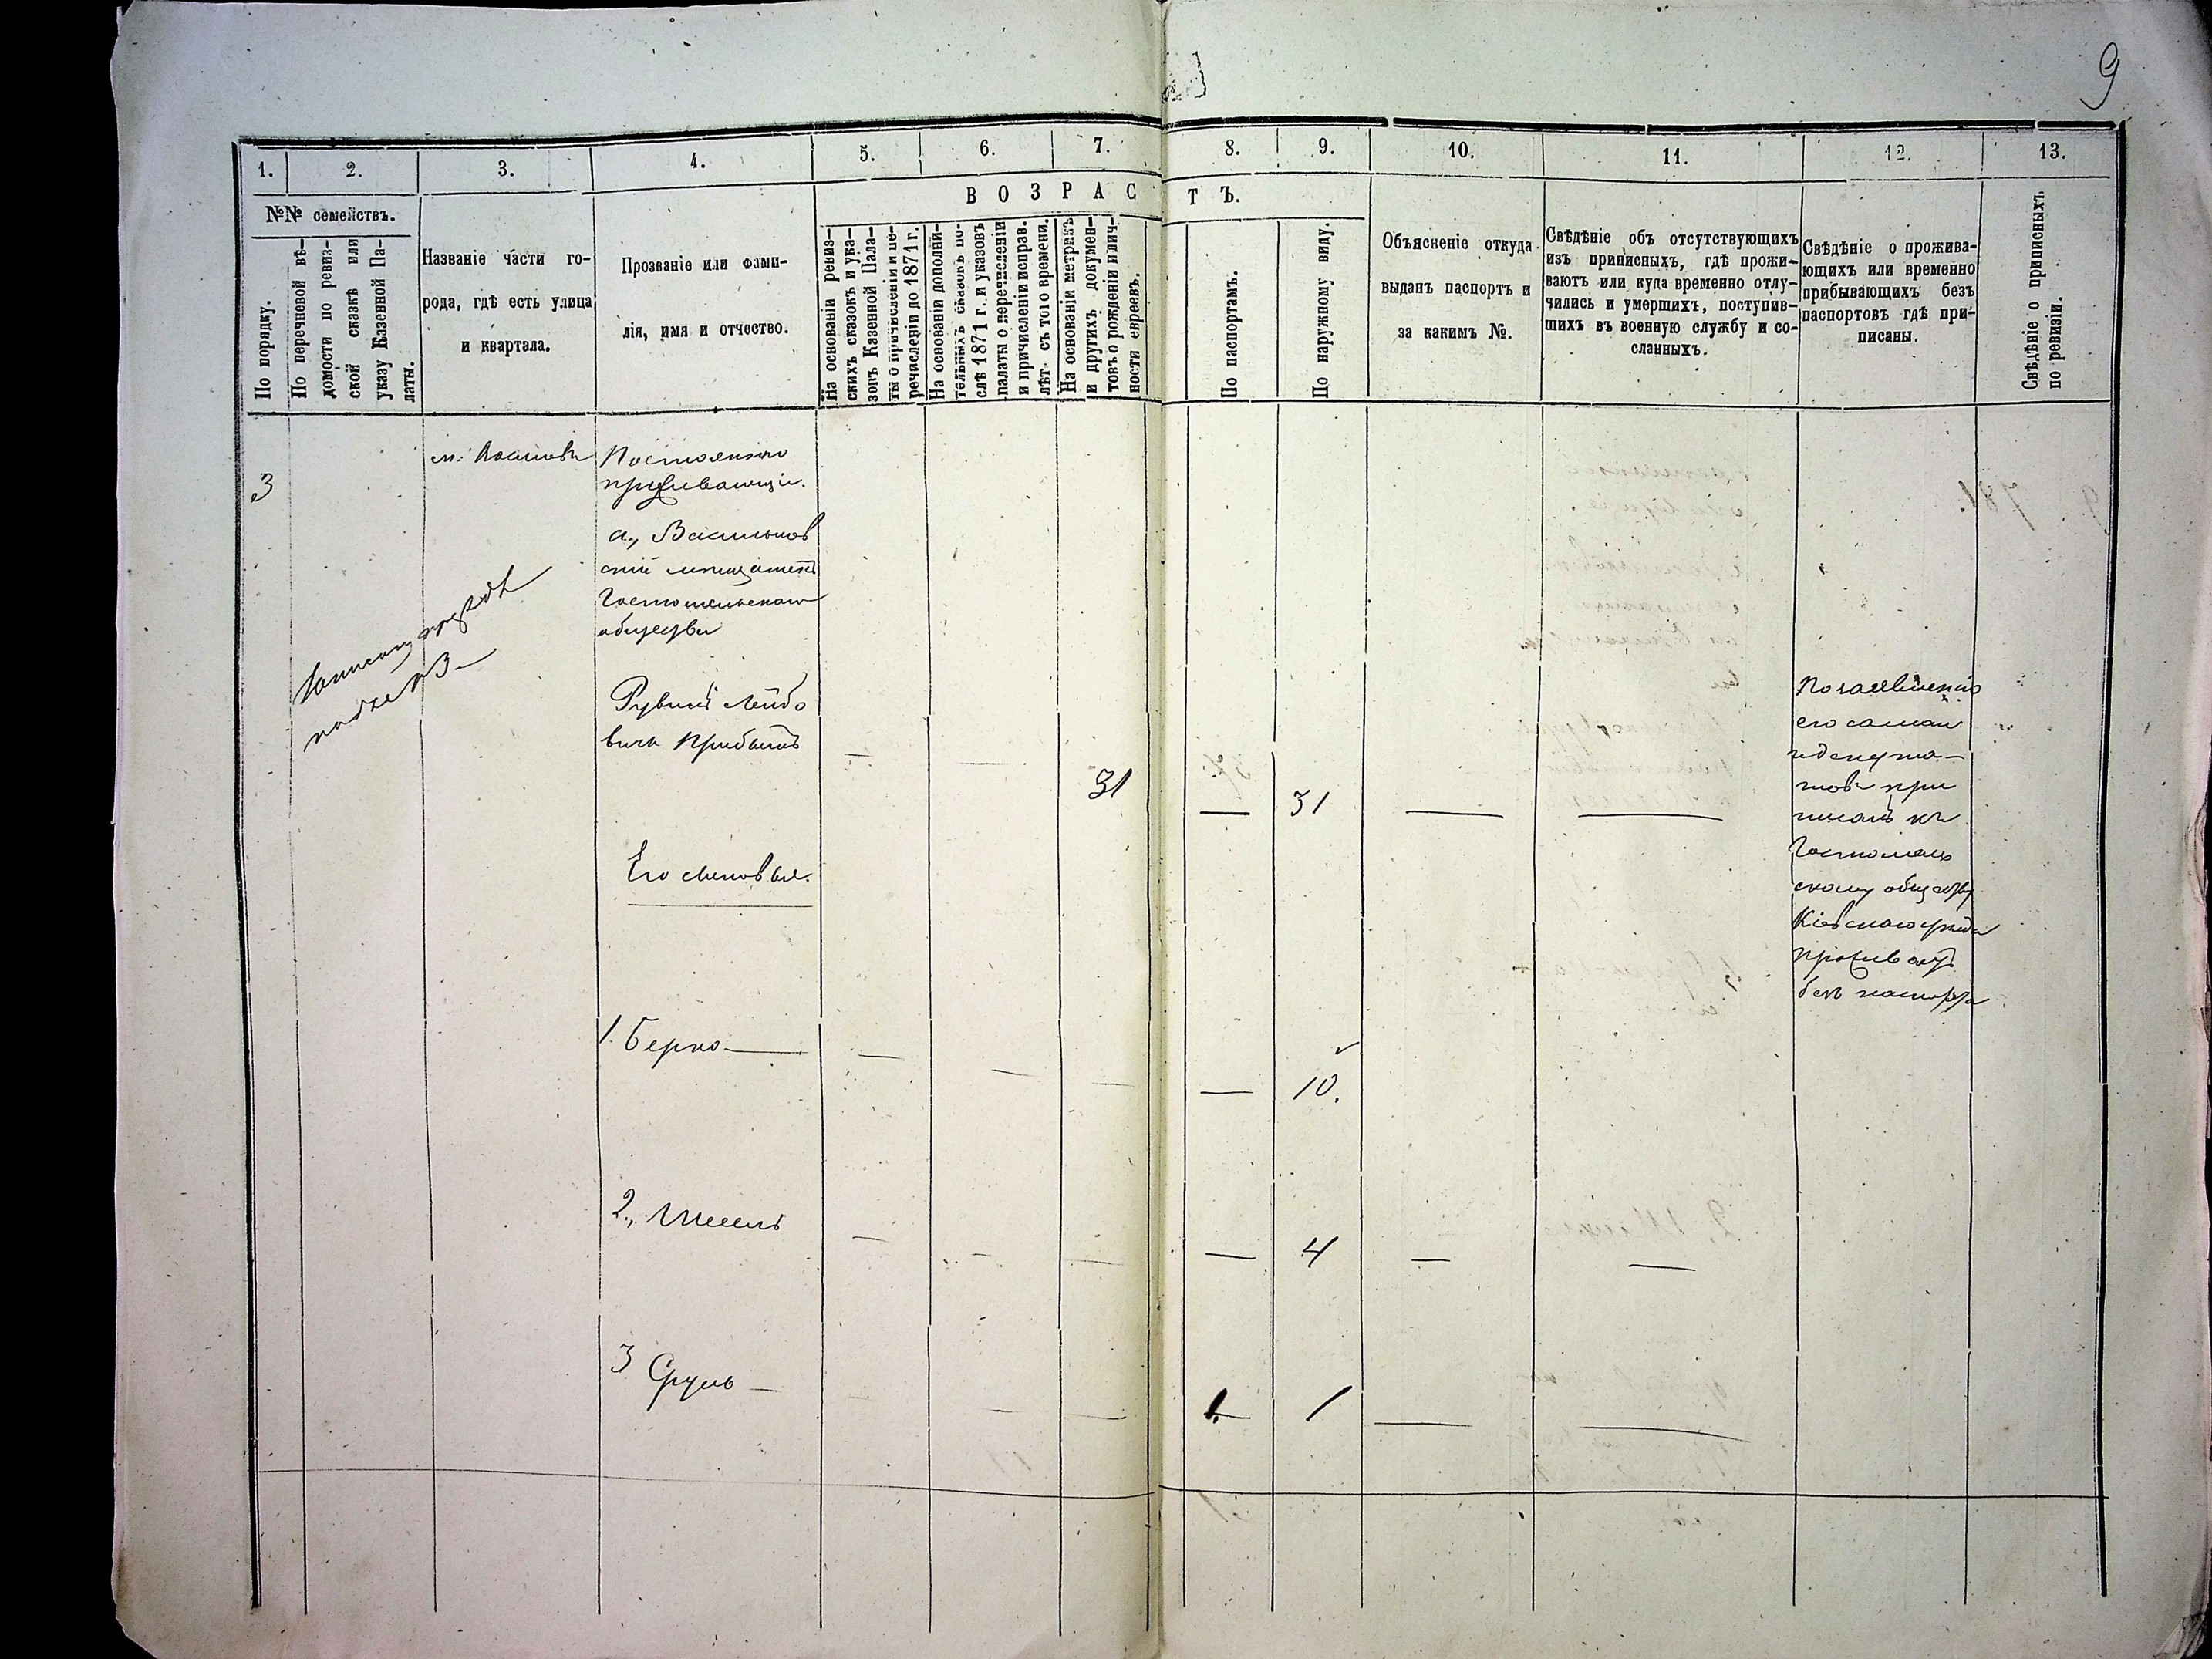 9
1. 2. 3. 4. 5. 6. 7. 8. 9. 10. 11. 12. 13.
№№ семействъ.
ВОЗРАСТЪ.
По порядку.
По перечневой вѣ-
домости по ревиз-
ской сказкѣ или
указу Казенной Па-
латы.
Названіе части го-
рода, гдѣ есть улица
и квартала.
Прозваніе или фами-
лія, имя и отчество.
На основаніи ревиз-
скихъ сказокъ и ука-
зовъ Казенной Пала-
ты о причисленіи и пе-
речисленіи до 1871 г.
На основаніи дополни-
тельныхъ сказокъ по-
слѣ 1871 г. и указовъ
палаты о перечисленіи
и причисленіи исправ.
лѣт. съ того времени.
На основаніи метрикъ
и другихъ докумен-
товъ о рожденіи и лич-
ности евреевъ.
По паспортамъ.
По наружному виду.
Объясненіе откуда
выданъ паспортъ и
за какимъ №.
Свѣдѣніе объ отсутствующихъ
изъ приписныхъ, гдѣ прожи-
ваютъ или куда временно отлу-
чились и умершихъ, поступив-
шихъ въ военную службу и со-
сланныхъ.
Свѣдѣніе о прожива-
ющихъ или временно
прибывающихъ безъ
паспортовъ гдѣ при-
писаны.
Свѣдѣніе о приписныхъ
по ревизіи.
3
м.
Постоянно
проживающіе.
а., Васильков
скій мещанинъ
Гостомельскаго
общества
№ 3
Рувинъ Лейбо
вичъ
— — 31 — 31 — —
Его сыновья.
1. Берко — — — — — 10.
2., Шмель — — — — 4 — —
3 Сруль — — — — 1. 1 — —
По заявленію
его самаго
и депута-
товъ при
писанъ къ
Гостомель
скому обществу
Кіевскаго уѣзда
проживаетъ
безъ паспорта